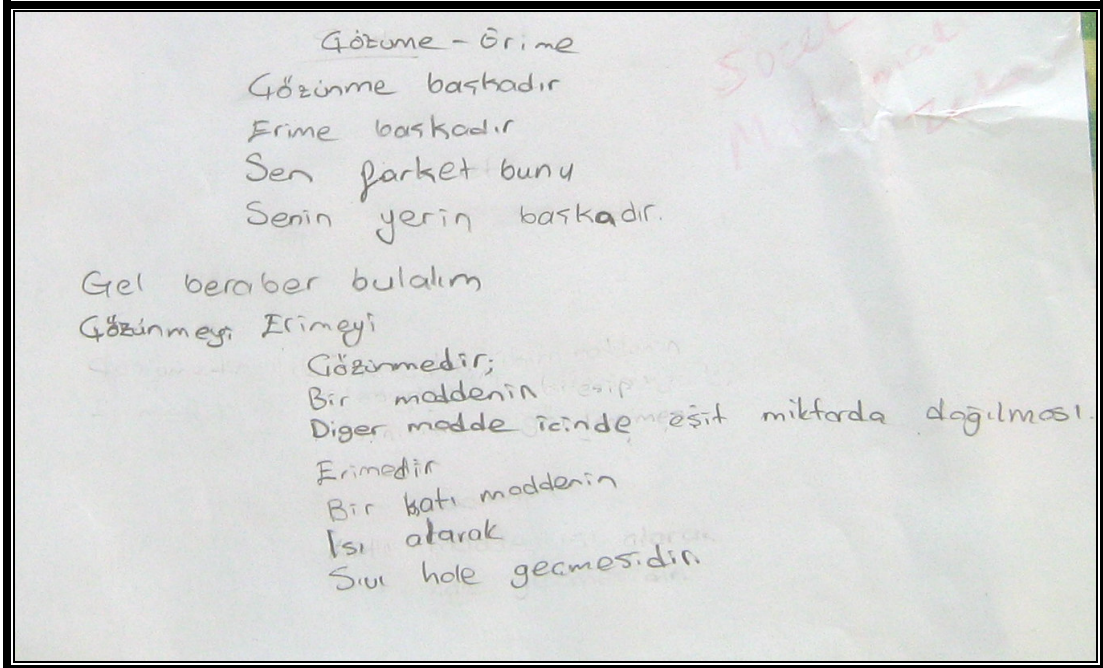 Çözüme - Erime
Çözünme başkadır
Erime başkadır
Sen farket bunu
Senin yerin başkadır.
Gel beraber bulalım
Çözünmeyi Erimeyi
Çözünmedir;
Bir maddenin
Diger madde içinde eşit miktarda dağılması.
Erimedir
Bir katı maddenin
Isı alarak
Sıvı hale geçmesidir.